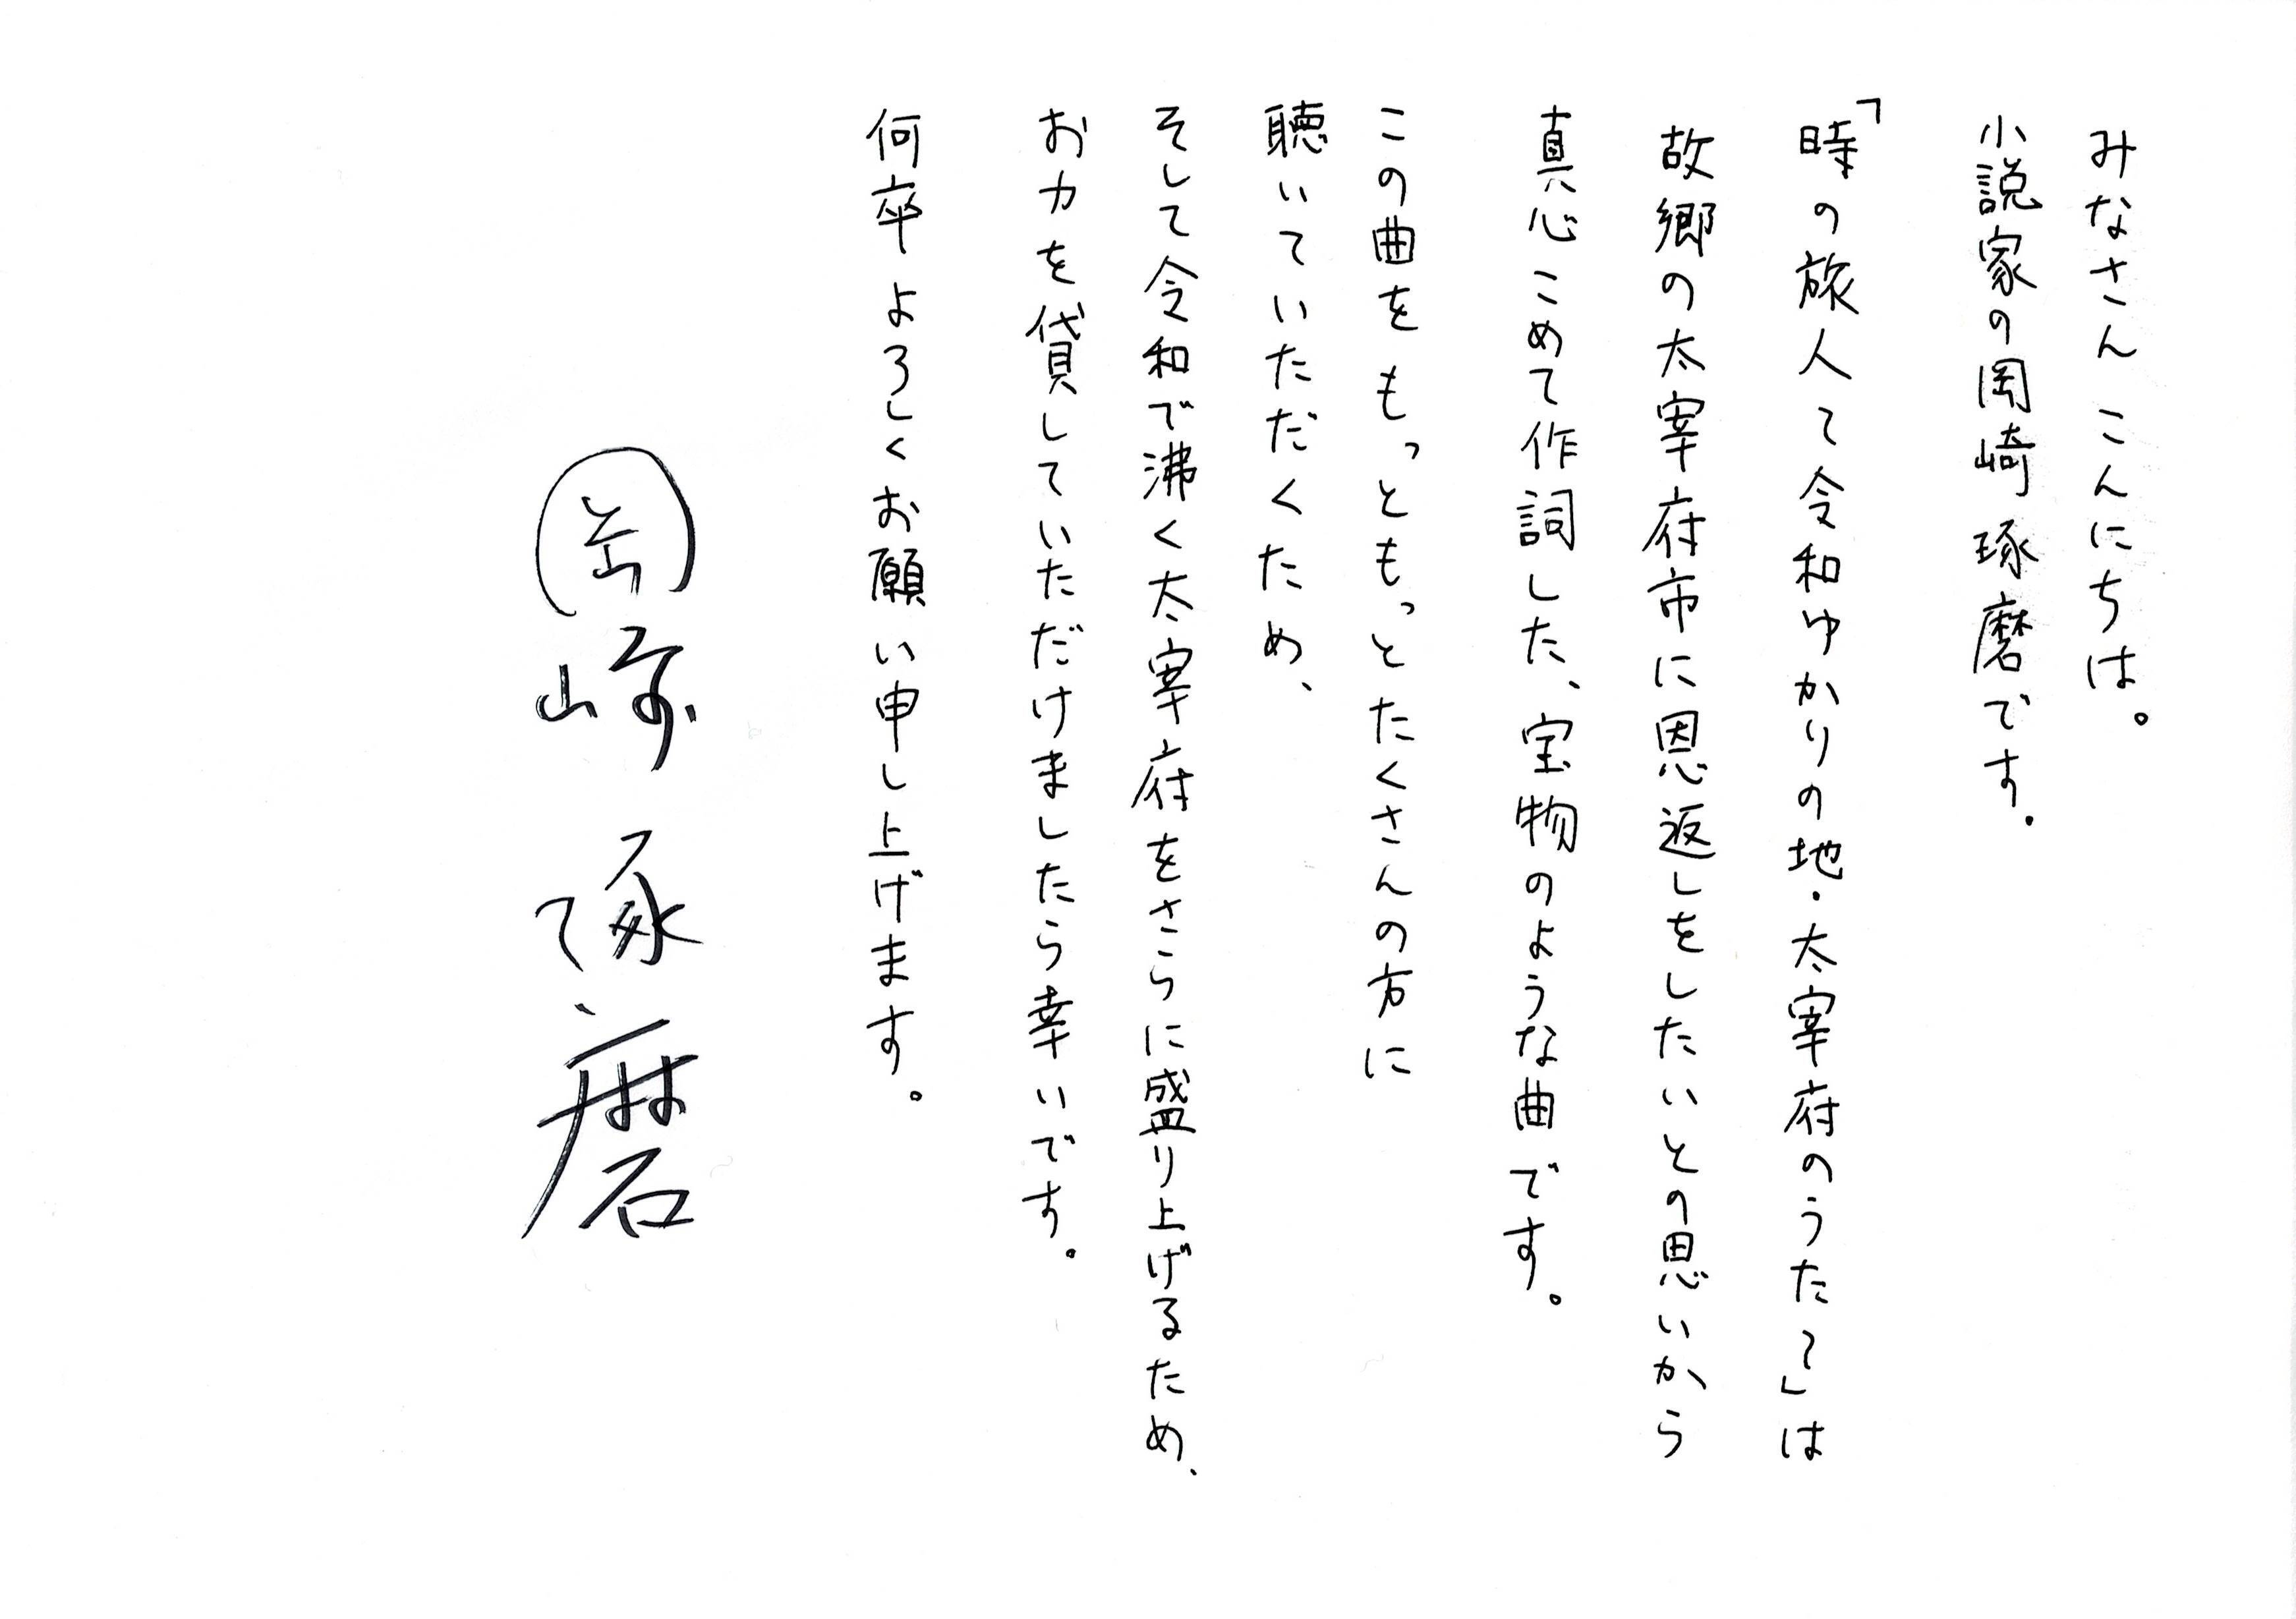 みなさん こんにちは。
小説家の岡崎 琢磨です。
「時の旅人〜令和ゆかりの地・太宰府のうた〜」は
故郷の太宰府市に恩返しをしたいとの思いから
真心こめて作詞した、宝物のような曲です。
この曲をもっともっとたくさんの方に
聴いていただくため、
そして令和で沸く太宰府をさらに盛り上げるため、
お力を貸していただけましたら幸いです。
何卒よろしくお願い申し上げます。
岡崎 琢磨